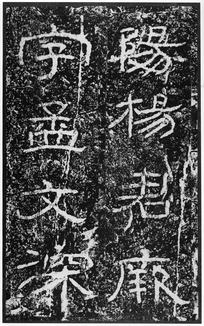 陽楊君厥
字孟文深